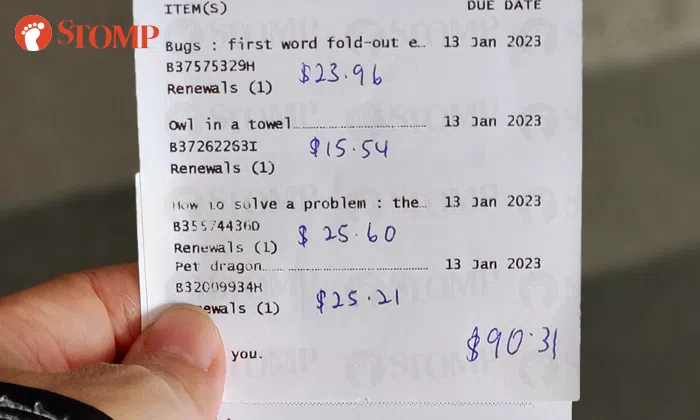 STOMP
ITEM(S) DUE DATE
Bugs : first word fold-out e… 13 Jan 2023
B37575329H $23.96
Renewals (1)
Owl in a towel 13 Jan 2023
B37262263I $15.54
Renewals (1)
How to solve a problem : the… 13 Jan 2023
B35574436D $25.60
Renewals (1)
Pet dragon 13 Jan 2023
B32009934H $25.21
ewals (1)
$90.31
you.
STOMP